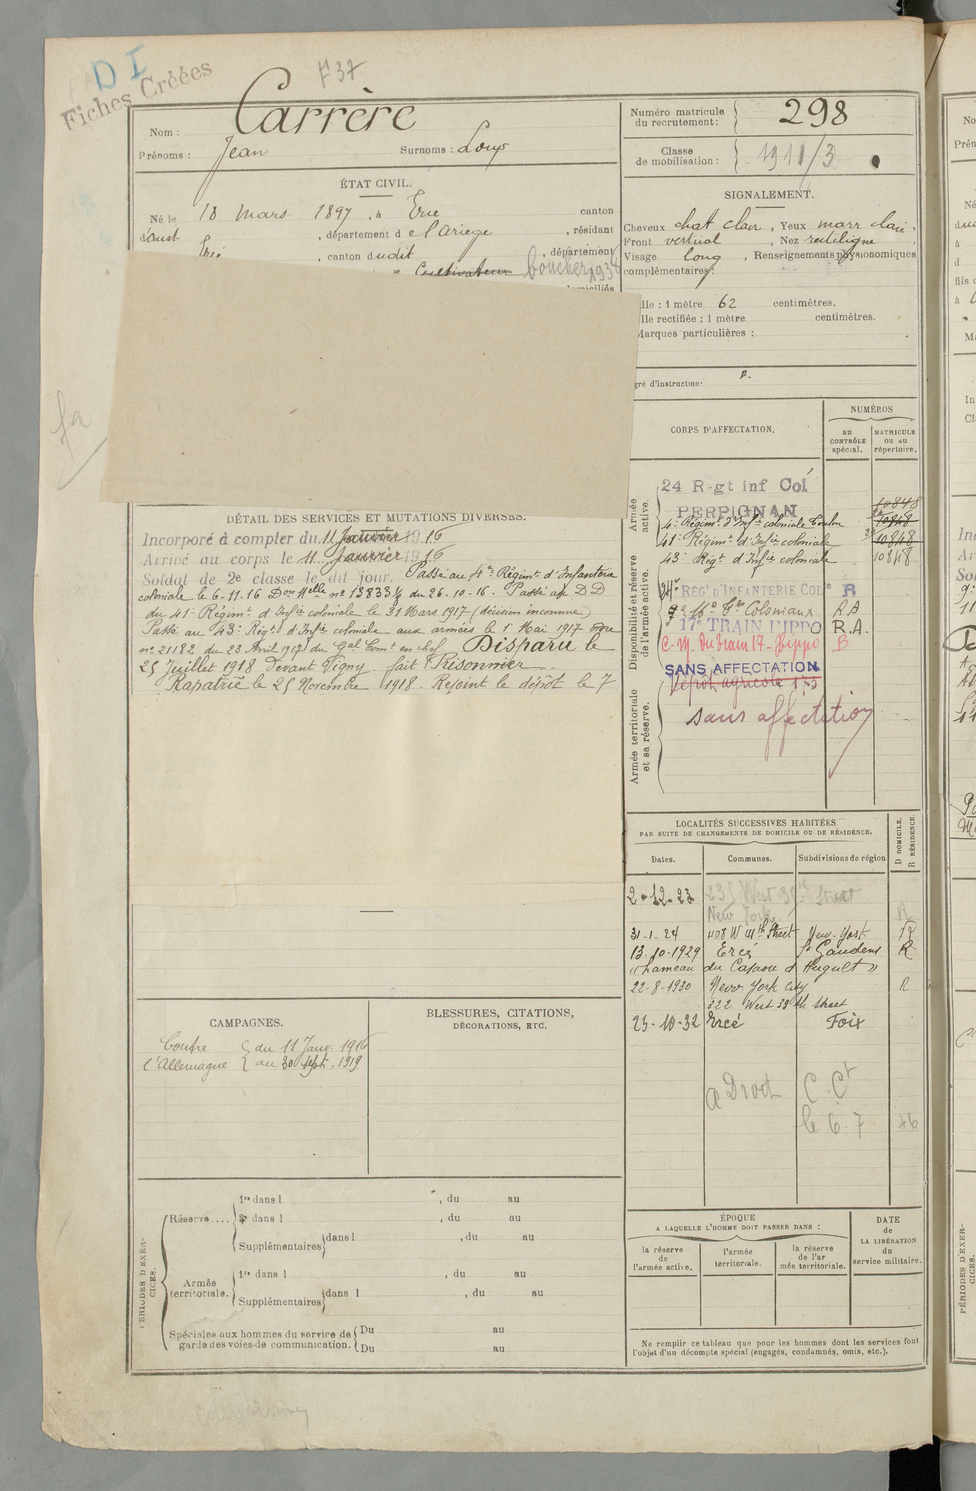 D I
Fiches Créées
F 37
Nom : Carrère
Prénoms : Jean Surnoms : Loup
Numéro matricule du recrutement : 298
Classe de mobilisation : 1911/3
ÉTAT CIVIL.
Né le 18 Mars 1897, à Ercé canton
d'Oust, département de l'Ariège, résidant
Ercé, canton dudit, département
Cultivateur boucher 1934
SIGNALEMENT.
Cheveux chat clair, Yeux marr clair,
Front vertical, Nez rectiligne
Visage long, Renseignements physionomiques
complémentaires :
lle : 1 mètre 62 centimètres.
lle rectifiée : 1 mètre centimètres.
Marques particulières :
gré d'instruction :
CORPS D'AFFECTATION.
NUMÉROS
au CONTRÔLE spécial.
MATRICULE ou au répertoire.
Armée active.
24 R-gt inf Col
PERPIGNAN 10848
4e Régimt d'Infie coloniale Toulon 10848
41e Régimt d'Infie coloniale 10848
43e Régt d'Infie coloniale 10848
Disponibilité et réserve de l'armée active.
24e REGt D'INFANTERIE COLe R
Coloniaux R A
17e TRAIN HIPPO R.A.
C. M. du train 17 - Hippo B
SANS AFFECTATION
Dépôt agricole 175
Armée territoriale et sa réserve.
sans affectation
DÉTAIL DES SERVICES ET MUTATIONS DIVERSES.
Incorporé à compter du 11 Janvier 1916
Arrivé au corps le 11 Janvier 1916
Soldat de 2e classe le dit jour. Passé au 4e Régimt d'Infanterie
coloniale le 6-11-16 Don Melle no 13833 1/4 du 26-10-16. Passé au D D
du 41e Régimt d'Infie coloniale le 31 Mars 1917 (décision inconnue)
Passé au 43e Régt d'Infie coloniale aux armées le 1 Mai 1917 ordre
no 21182 du 23 Avril 1917 du Gal Comt en chef. Disparu le
25 Juillet 1918 devant Vigny fait Prisonnier
Rapatrié le 25 Novembre 1918. Rejoint le dépôt le 7
LOCALITÉS SUCCESSIVES HABITÉES
PAR SUITE DE CHANGEMENTS DE DOMICILE OU DE RÉSIDENCE.
Dates. Communes. Subdivisions de région D DOMICILE. R RÉSIDENCE.
2-12-23 235 West 39th Street
New York R
31-1-24 408 W 41th Street New-York R
13-10-1929 Ercé St Gaudens R
"hameau du Casaou d'Huguet"
22-8-1930 New York City R
322 West 38th street
23-10-32 Ercé Foix
a Droit C. Ct
le 6.7 46
CAMPAGNES.
Contre du 11 Janv. 1916
l'Allemagne au 30 Sept. 1919
BLESSURES, CITATIONS,
DÉCORATIONS, ETC.
PÉRIODES D'EXERCICES.
Réserve.... 1re dans l , du au
2e dans l , du au
Supplémentaires dans l , du au
Armée territoriale. 1re dans l , du au
Supplémentaires dans l , du au
Spéciales aux hommes du service de garde des voies de communication. Du au
Du au
ÉPOQUE
A LAQUELLE L'HOMME DOIT PASSER DANS :
la réserve de l'armée active.
l'armée territoriale.
la réserve de l'armée territoriale.
DATE DE LA LIBÉRATION du service militaire.
Ne remplir ce tableau que pour les hommes dont les services font
l'objet d'un décompte spécial (engagés, condamnés, omis, etc.).